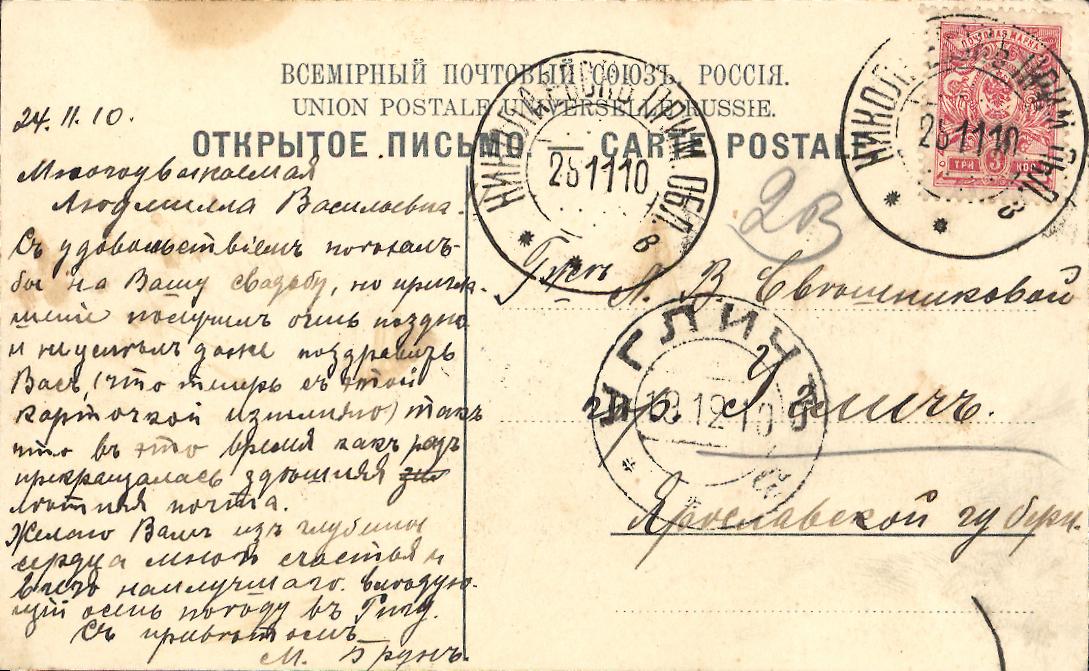 ВСЕМІРНЫЙ ПОЧТОВЫЙ СОЮЗЪ. РОССІЯ.
UNION POSTALE UNIVERSELLE RUSSIE.
ОТКРЫТОЕ ПИСЬМО — CARTE POSTALE
ПОЧТОВАЯ МАРКА
ТРИ 3 КОП
НИКОЛАЕВСКЪ ПРИМ. ОБЛ. В
26 11 10
НИКОЛАЕВСКЪ ПРИМ. ОБЛ. В
26 11 10
24.11.10.
Многоуважаемая
Людмилла Васильевна.
Съ удовольствіемъ поѣхалъ
бы на Вашу свадьбу, но пригла-
шеніе получилъ очень поздно
и не успѣлъ даже поздравить
Васъ, (что теперь съ этой
карточкой излишно) такъ
что въ это время какъ разъ
прекращалась здѣшняя
лѣтняя почта.
Желаю Вамъ изъ глубины
сердца много счастья и
всего наилучшаго.
осень въ
Съ привѣтомъ
М. Брунъ.
2В
Л. В. Евтюшниковой
УГЛИЧЪ
13 12 10
гр. Угличъ.
Ярославской губерн.